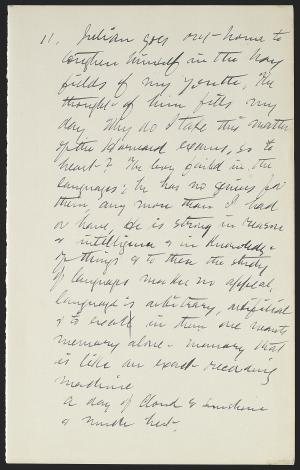 11. Julian goes out-home to
toughen himself in the hay
fields of my youth. The
thought of him fills my
day. Why do I take this matter
of the Harvard exams, so to
heart? The boy failed in the
languages; he has no genius for
them any more than I had
or have. He is strong in reason
& intelligence & in knowledge
of things & to these the study
of languages makes no appeal.
Language is arbitrary, artificial
& to excell in them one wants
memory alone - memory that
is like an exact recording
machine
a day of cloud & sunshine
& much heat.